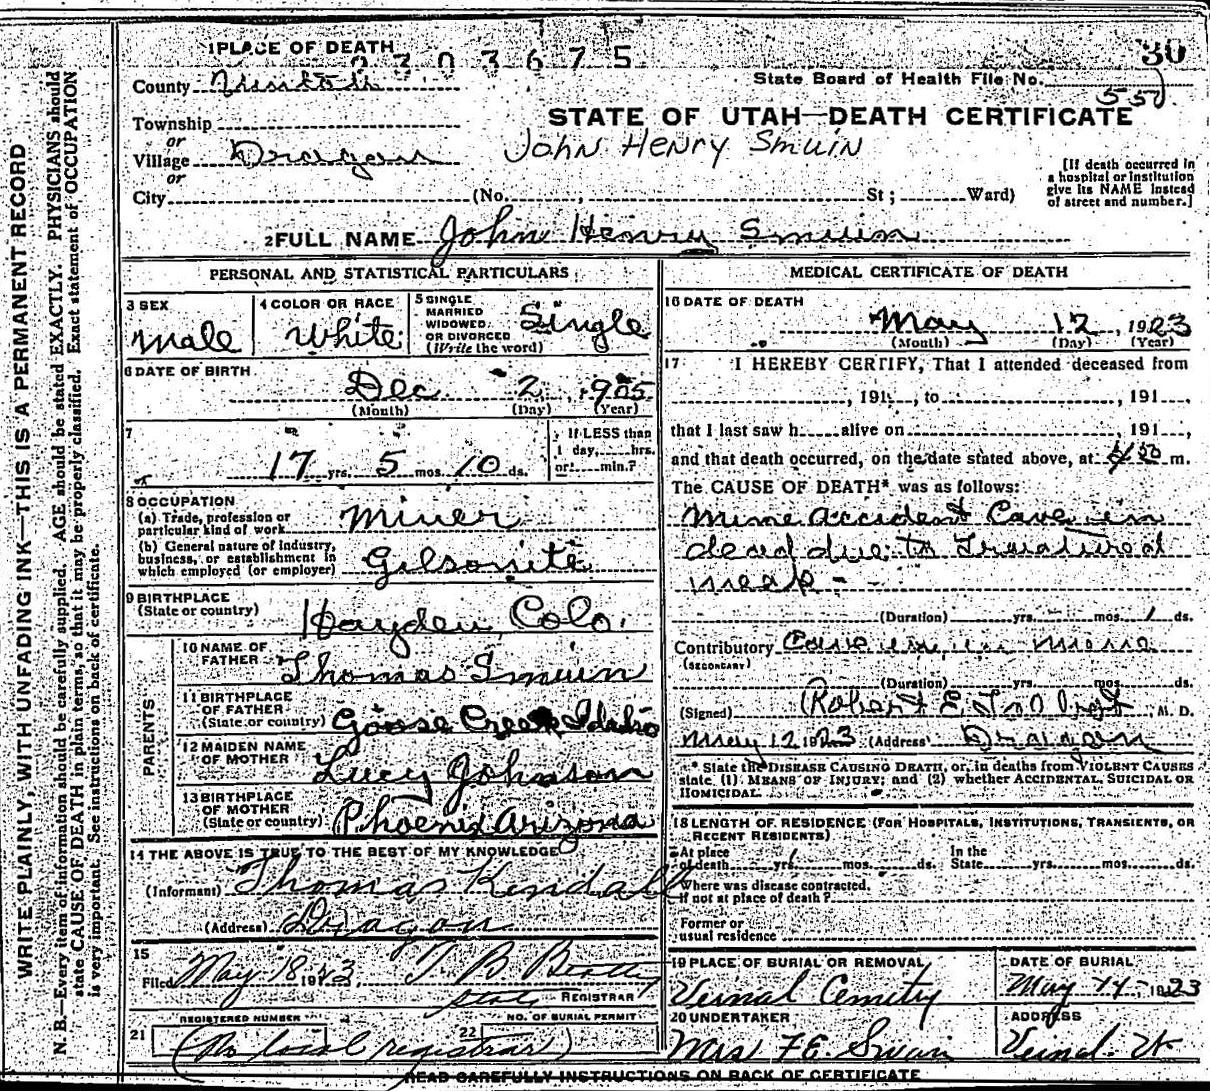 WRITE PLAINLY, WITH UNFADING INK—THIS IS A PERMANENT RECORD
N. B.—Every item of information should be carefully supplied. AGE should be stated EXACTLY. PHYSICIANS should
state CAUSE OF DEATH in plain terms, so that it may be properly classified. Exact statement of OCCUPATION
is very important. See instructions on back of certificate.
1 PLACE OF DEATH
0303675
30
County
State Board of Health File No.
Township
STATE OF UTAH—DEATH CERTIFICATE
or
John Henry Smuin
Village Dragon
or
City (No. , St ; Ward)
[If death occurred in
a hospital or institution
give its NAME instead
of street and number.]
2 FULL NAME John Henry Smuin
PERSONAL AND STATISTICAL PARTICULARS
3 SEX
Male
4 COLOR OR RACE
White
5 SINGLE
MARRIED
WIDOWED
OR DIVORCED
(Write the word)
Single
6 DATE OF BIRTH
Dec 2, 1905
(Month) (Day) (Year)
7
17 yrs. 5 mos. 10 ds.
If LESS than
1 day, hrs.
or min.?
8 OCCUPATION
(a) Trade, profession or
particular kind of work Miner
(b) General nature of industry,
business, or establishment in
which employed (or employer) Gilsonite
9 BIRTHPLACE
(State or country) Hayden, Colo.
PARENTS
10 NAME OF
FATHER Thomas Smuin
11 BIRTHPLACE
OF FATHER
(State or country) Goose Creek Idaho
12 MAIDEN NAME
OF MOTHER Lucy Johnson
13 BIRTHPLACE
OF MOTHER
(State or country) Phoenix Arizona
14 THE ABOVE IS TRUE TO THE BEST OF MY KNOWLEDGE
(Informant) Thomas Kendall
(Address) Dragon
15
Filed May 18 1923, T. B. Beatty
State REGISTRAR
REGISTERED NUMBER
NO. OF BURIAL PERMIT
21 22
(No local registrar)
MEDICAL CERTIFICATE OF DEATH
16 DATE OF DEATH
May 12, 1923
(Month) (Day) (Year)
17 I HEREBY CERTIFY, That I attended deceased from
, 191 , to , 191 ,
that I last saw h alive on , 191 ,
and that death occurred, on the date stated above, at m.
The CAUSE OF DEATH* was as follows:
Mine Accident Cave in
dead due to
(Duration) yrs. mos. 1 ds.
Contributory Cave in in mine
(SECONDARY)
(Duration) yrs. mos. ds.
(Signed) Robert E , M. D.
May 12 1923 (Address) Dragon
* State the DISEASE CAUSING DEATH, or, in deaths from VIOLENT CAUSES
state (1) MEANS OF INJURY; and (2) whether ACCIDENTAL, SUICIDAL OR
HOMICIDAL.
18 LENGTH OF RESIDENCE (FOR HOSPITALS, INSTITUTIONS, TRANSIENTS, OR
RECENT RESIDENTS)
At place
of death yrs. mos. ds.
In the
State yrs. mos. ds.
Where was disease contracted,
if not at place of death?
Former or
usual residence
19 PLACE OF BURIAL OR REMOVAL
Vernal Cemetry
DATE OF BURIAL
May 14- 1923
20 UNDERTAKER
Mrs F E. Swain
ADDRESS
Vernal. Ut
READ CAREFULLY INSTRUCTIONS ON BACK OF CERTIFICATE